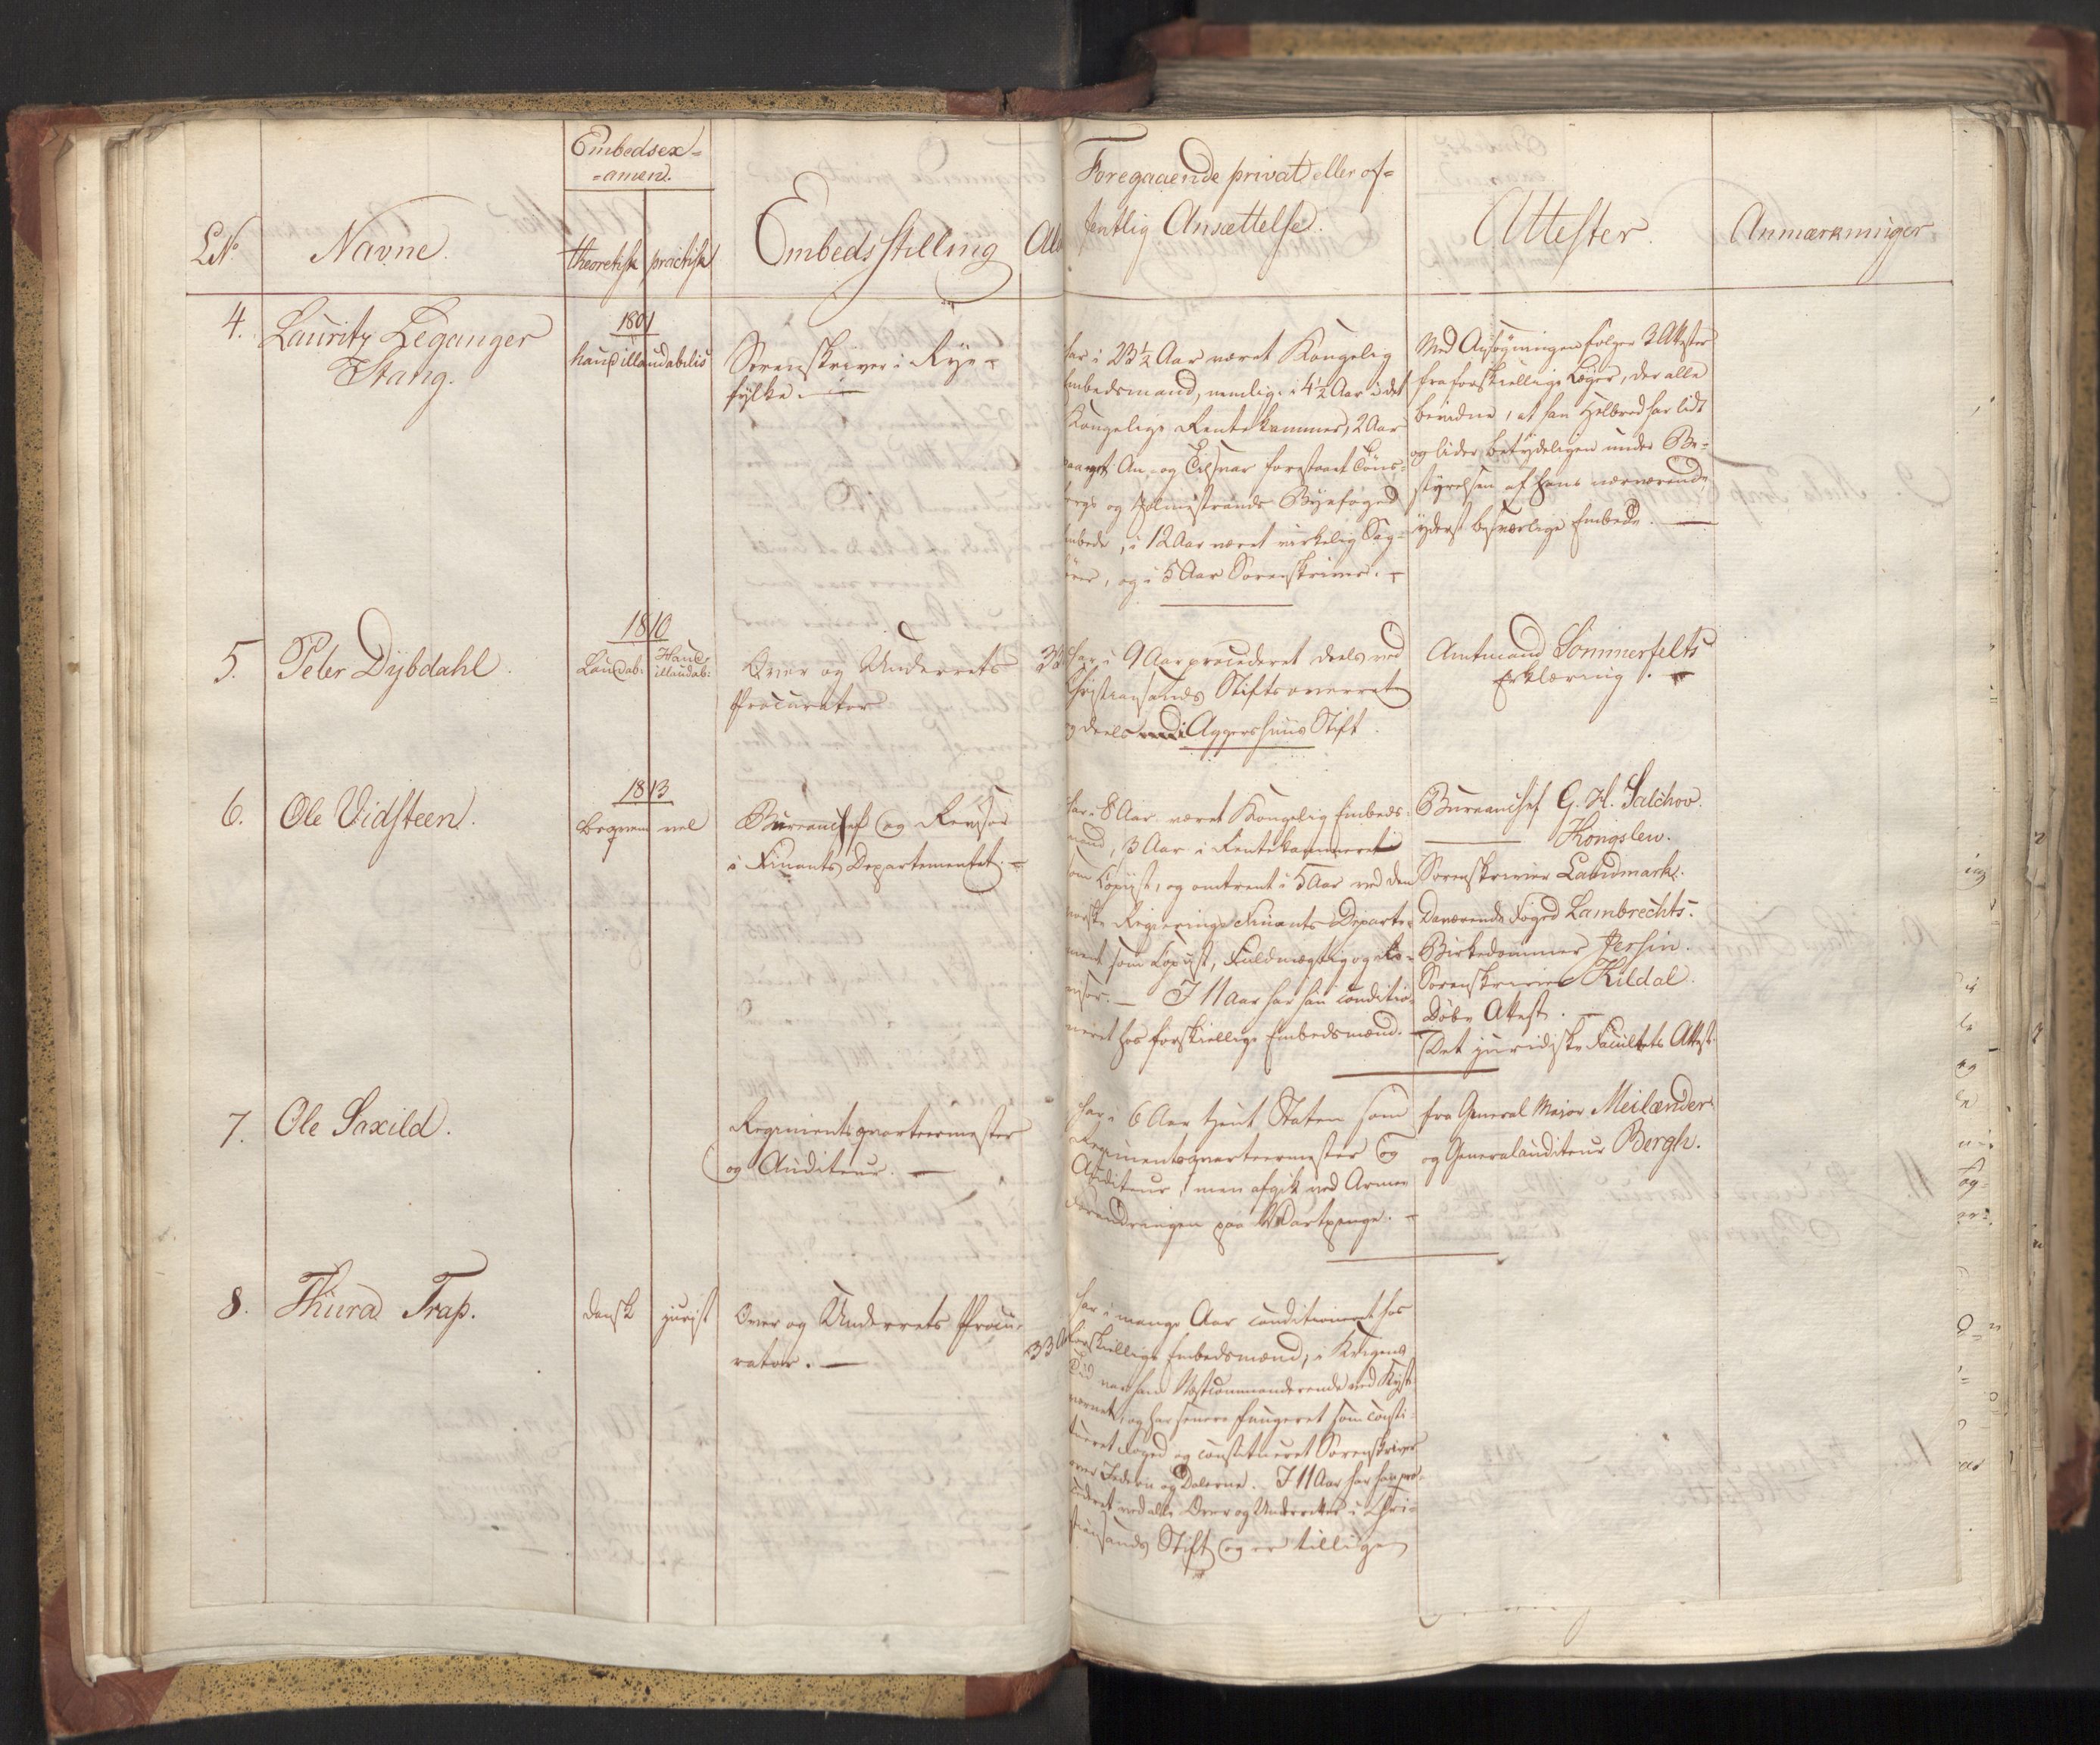 Embedsex=
=amen.
L.№
Navne.
theoretisk
practisk
Embedsstilling
Foregaaende privat eller of=
fentlig Ansættelse.
Attester.
Anmærkninger
4.
Lauritz Leganger
Stang.
1801
haud illaudabilis
Sorenskriver i Rye=
fylke.
har i 23½ Aar været Kongelig
Embedsmand, nemlig: i 4½ Aar i det
Kongelige Rentekammer, 2 Aar
paa eget An- og Tilsvar forestaaet Töns=
bergs og Holmestrands Byefoged
embede, i 12 Aar været virkelig Sag=
förer, og i 5 Aar Sorenskriver.
Med Ansögningen fölger 3 Attester
fra forskiellige Læger, der alle
bevidne, at hans Helbred har lidt
og lider betydeligen under Be=
styrelsen af hans nærværende
yderst besværlige Embede.
5.
Peter Dybdahl.
1810
Laudab:
Haud
illaudab:
Over og Underrets
Procurator
har i 9 Aar procederet deels ved
Christiansands Stiftsoverret
og deels i Aggershuus Stift.
Amtmand Sommerfelts
Erklæring.
6.
Ole Vidsteen.
1813
beqvem
vel
Bureauchef og Revisor
i Finants Departementet.
har i 8 Aar været Kongelig Embeds=
mand, 3 Aar i Rentekammeret
som Copiist, og omtrent i 5 Aar ved den
norske Regierings Finants Departe=
ment som Copiist, Fuldmægtig og Re=
visor. — I 11 Aar har han conditio=
neret hos forskiellige Embedsmænd.
Bureauchef G. H. Salchov.
Kongslew.
Sorenskriver Landmark.
Daværende Foged Lambrechts.
Birkedommer Jersin.
Sorenskriver Kildal.
Döbe Attest.
Det juridiske Facultets Attest.
7.
Ole Saxild.
Regimentsqvarteermester
og Auditeur.
har i 6 Aar tient Staten som
Regimentsqvarteermester og
Auditeur, men afgik ved Armee
forandringen paa Vartpenge.
fra General Major Meilænder
og Generalauditeur Bergh.
8.
Thura Trap.
dansk
jurist
Over og Underrets Procu=
rator.
33
har i mange Aar conditioneret hos
forskiellige Embedsmænd, i Krigens
Tid var han Næstcommanderende ved Kyst=
værnet, og har senere fungeret som consti=
tueret Foged og constitueret Sorenskriver
over Jederen og Dalerne. I 11 Aar har han pro=
cederet ved alle Over og Underretter i Chri=
stiansands Stift og er tilligen